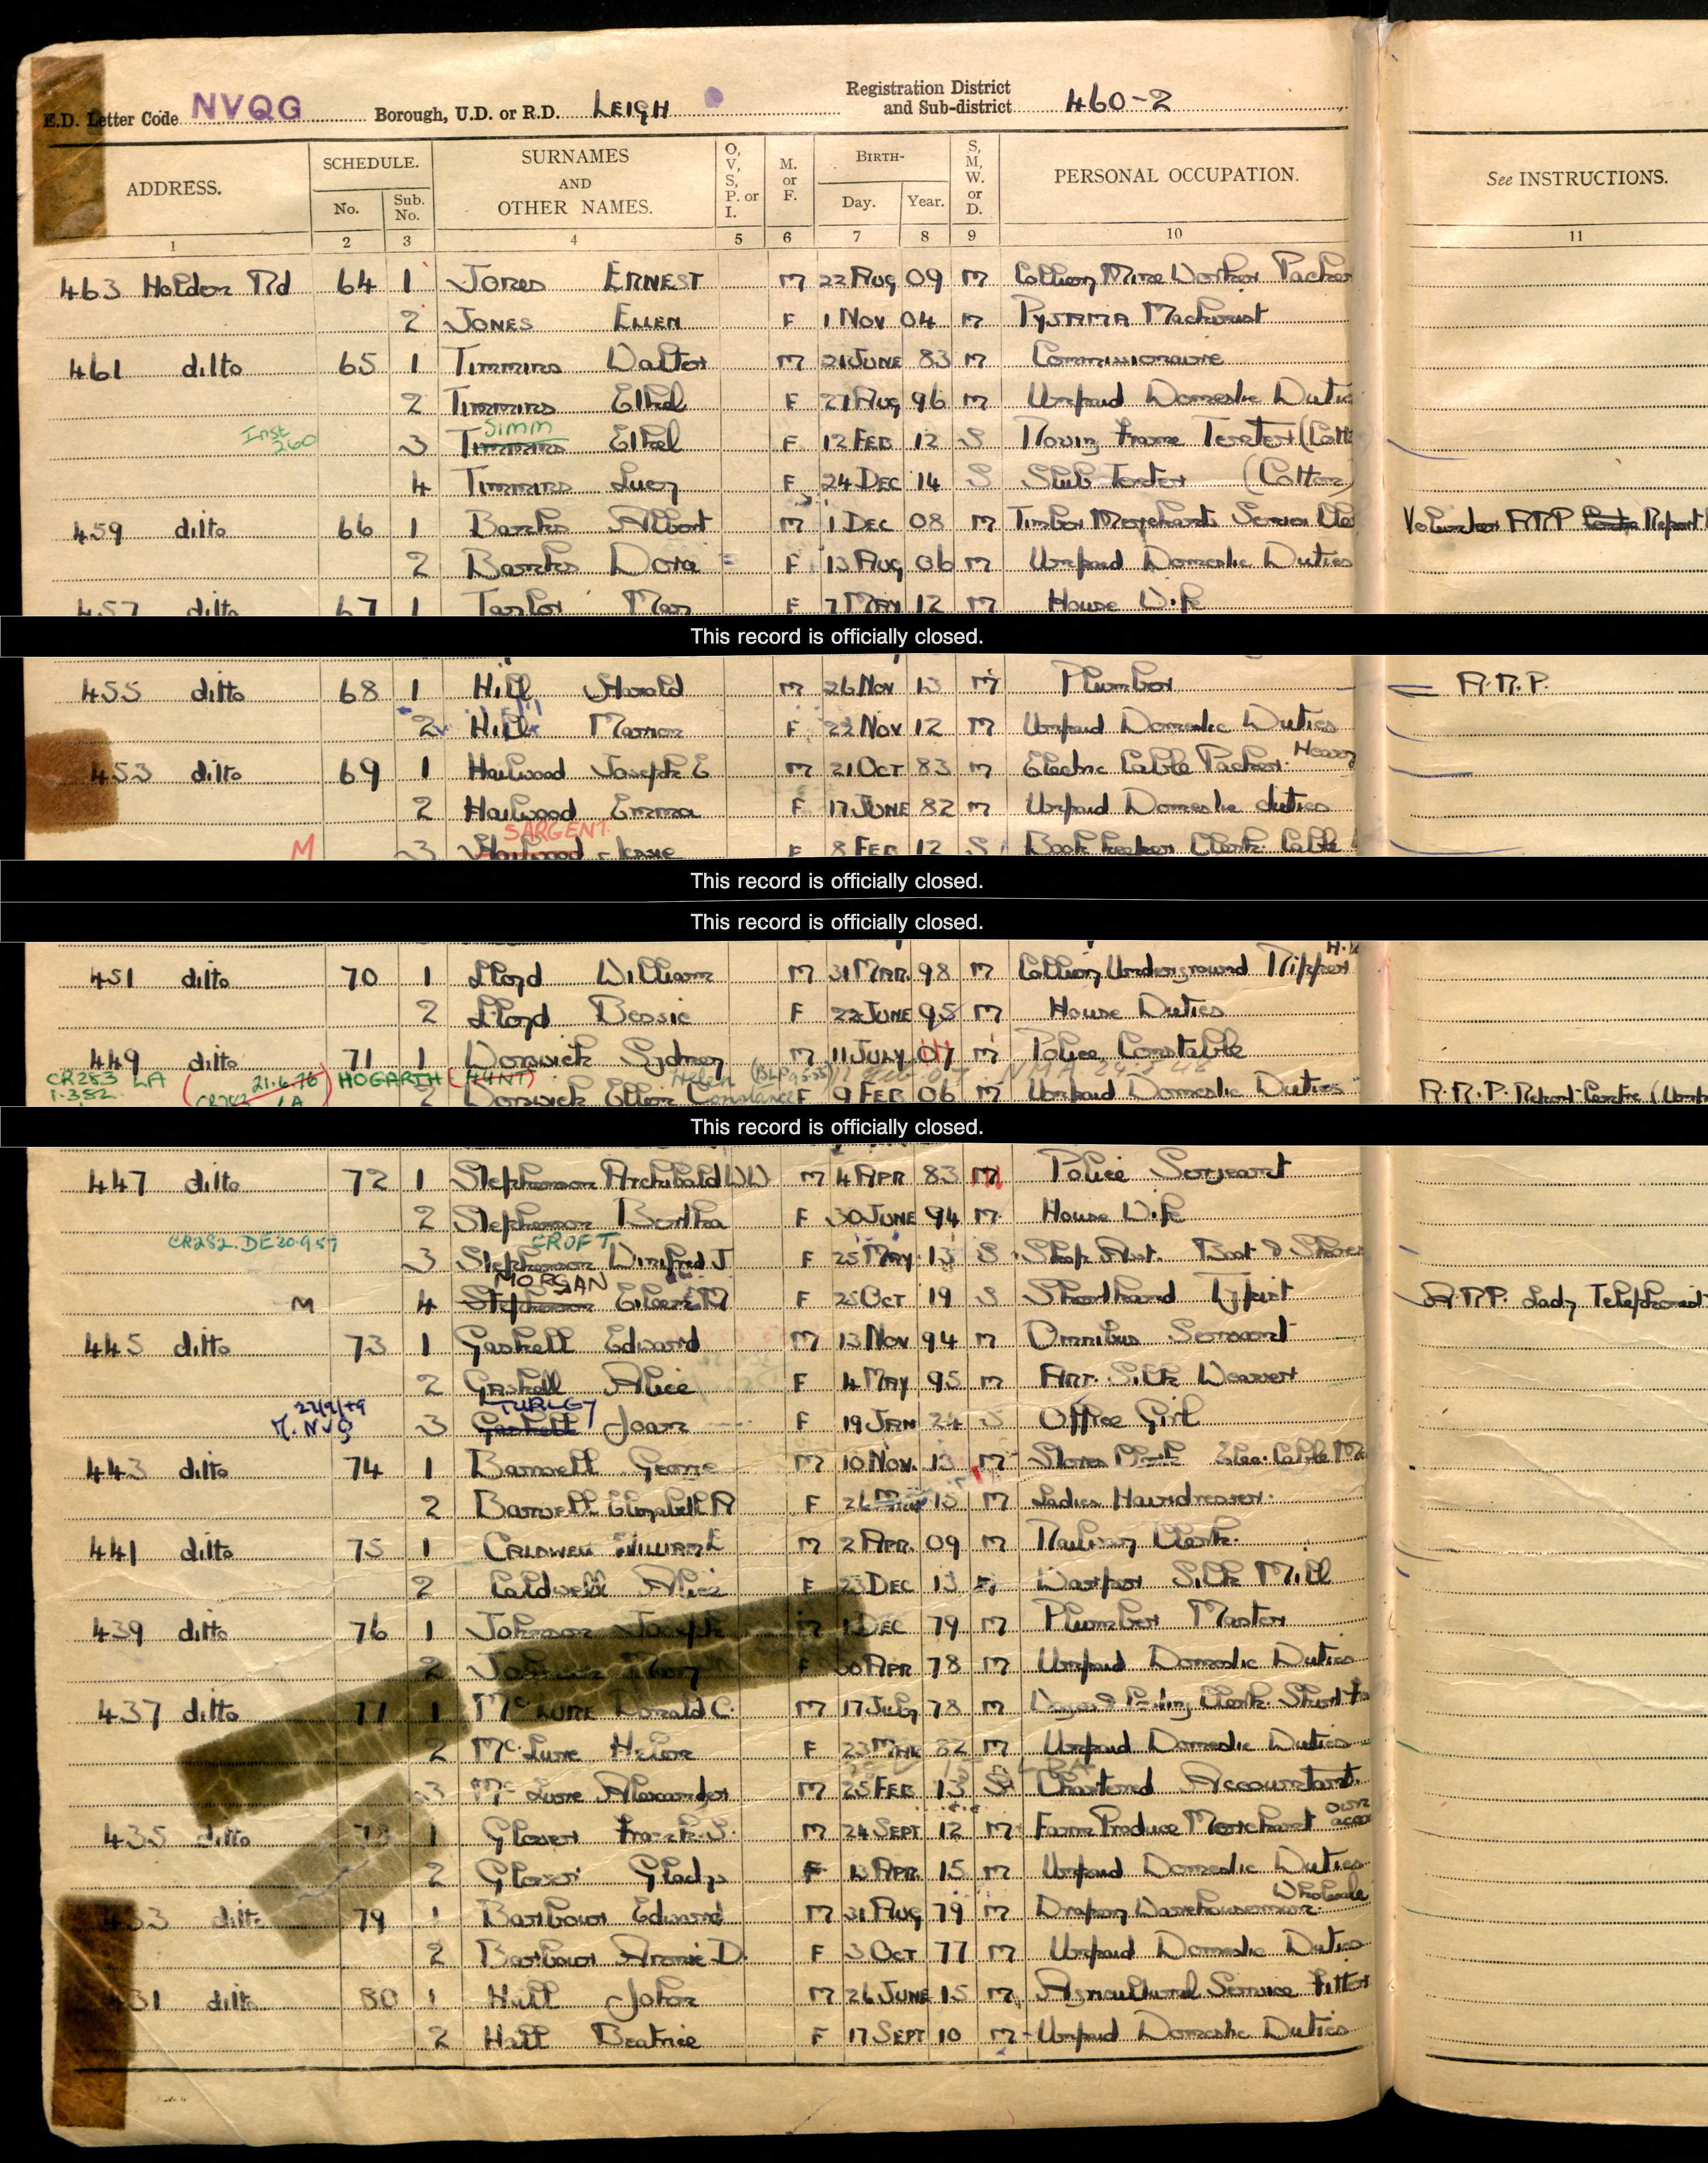 E.D. Letter Code NVQG Borough, U.D. or R.D. LEIGH Registration District and Sub-district 460-2
ADDRESS. SCHEDULE. No. Sub. No. SURNAMES AND OTHER NAMES. O, V, S, P. or I. M. or F. BIRTH- Day. Year. S, M, W. or D. PERSONAL OCCUPATION. See INSTRUCTIONS.
1 2 3 4 5 6 7 8 9 10 11
463 Holden Rd 64 1 Jones ERNEST M 22 Aug 09 M Colliery Mine Worker Packer
2 JONES ELLEN F 1 Nov 04 M PYJAMA Machinist
461 ditto 65 1 Timmins Walter M 21 JUNE 83 M Commissionaire
2 Timmins Ethel F 27 Aug 96 M Unpaid Domestic Dutie
Inst 260 SIMM
3 Timmins Ethel F 12 FEB 12 S Roving Frame Tenter (Cott
4 Timmins Lucy F 24 DEC 14 S Slub Tenter (Cotton)
459 ditto 66 1 Banks Albert M 1 DEC 08 M Timber Merchants Senior Cle Volunteer A.R.P. Report
2 Banks Dora F 13 Aug 06 M Unpaid Domestic Duties
457 ditto 67 1 Taylor May F 7 MAY 12 M House Wife
This record is officially closed.
455 ditto 68 1 Hill Harold M 26 Nov 13 M Plumber A.R.P.
2 Hill Marion F 22 Nov 12 M Unpaid Domestic Duties
453 ditto 69 1 Hailwood Joseph E M 21 Oct 83 M Electric Cable Packer Heavy
2 Hailwood Emma F 17 JUNE 82 M Unpaid Domestic duties
SARGENT
M 3 Hailwood Jessie F 8 FEB 12 S Book keeper Clerk Cable
This record is officially closed.
This record is officially closed.
451 ditto 70 1 Lloyd William M 31 MAR 98 M Colliery Underground Ripper
2 Lloyd Bessie F 22 JUNE 95 M House Duties
449 ditto 71 1 Worwick Sydney M 11 JULY 07 M Police Constable
CR283 LA 1.3.82 21.6.76 HOGARTH (44NT) Helen
2 Worwick Ellen Constance F 9 FEB 06 M Unpaid Domestic Duties A.R.P. Report Centre
This record is officially closed.
447 ditto 72 1 Stephenson Archibald W W M 4 APR 83 M Police Sergeant
2 Stephenson Bertha F 30 JUNE 94 M House Wife
CR282.DE 20.9.57 CROFT
3 Stephenson Winifred J F 25 May 13 S Shop Asst. Boot & Shoes
MORGAN
M 4 Stephenson Eileen M F 25 Oct 19 S Shorthand Typist A.R.P. Lady Telephonist
445 ditto 73 1 Gaskell Edward M 13 Nov 94 M Omnibus Servant
2 Gaskell Alice F 4 MAY 95 M Art. Silk Weaver
TURLEY
3 Gaskell Joan F 19 JAN 24 S Office Girl
443 ditto 74 1 Barwell George M 10 Nov. 13 M Stores Elec. Cable
2 Barwell Elizabeth A F 26 15 M Ladies Hairdresser.
441 ditto 75 1 CALDWELL WILLIAM E M 2 APR. 09 M Railway Clerk.
2 Caldwell Alice F 23 DEC 13 Warper Silk Mill
439 ditto 76 1 Johnson Joseph 1 DEC 79 M Plumber Master
2 Johnson Mary F 30 APR 78 M Unpaid Domestic Duties
437 ditto 77 1 McLURE Donald C. M 17 July 78 M Clerk
2 McLure Helen F 23 MAR 82 M Unpaid Domestic Duties
3 McLure Alexander M 25 FEB 13 S Chartered Accountant.
435 ditto 78 1 Glover Frank S. M 24 SEPT 12 M Farm Produce Merchant own
2 Glover Gladys F 13 APR. 15 M Unpaid Domestic Duties
433 ditto 79 1 Barbour Edward M 31 Aug 79 M Drapery Warehouseman. Wholesale
2 Barbour Annie D. F 3 Oct 77 M Unpaid Domestic Duties
431 ditto 80 1 Hall John M 26 JUNE 15 M Agricultural Service Fitter
2 Hall Beatrice F 17 SEPT 10 M Unpaid Domestic Duties